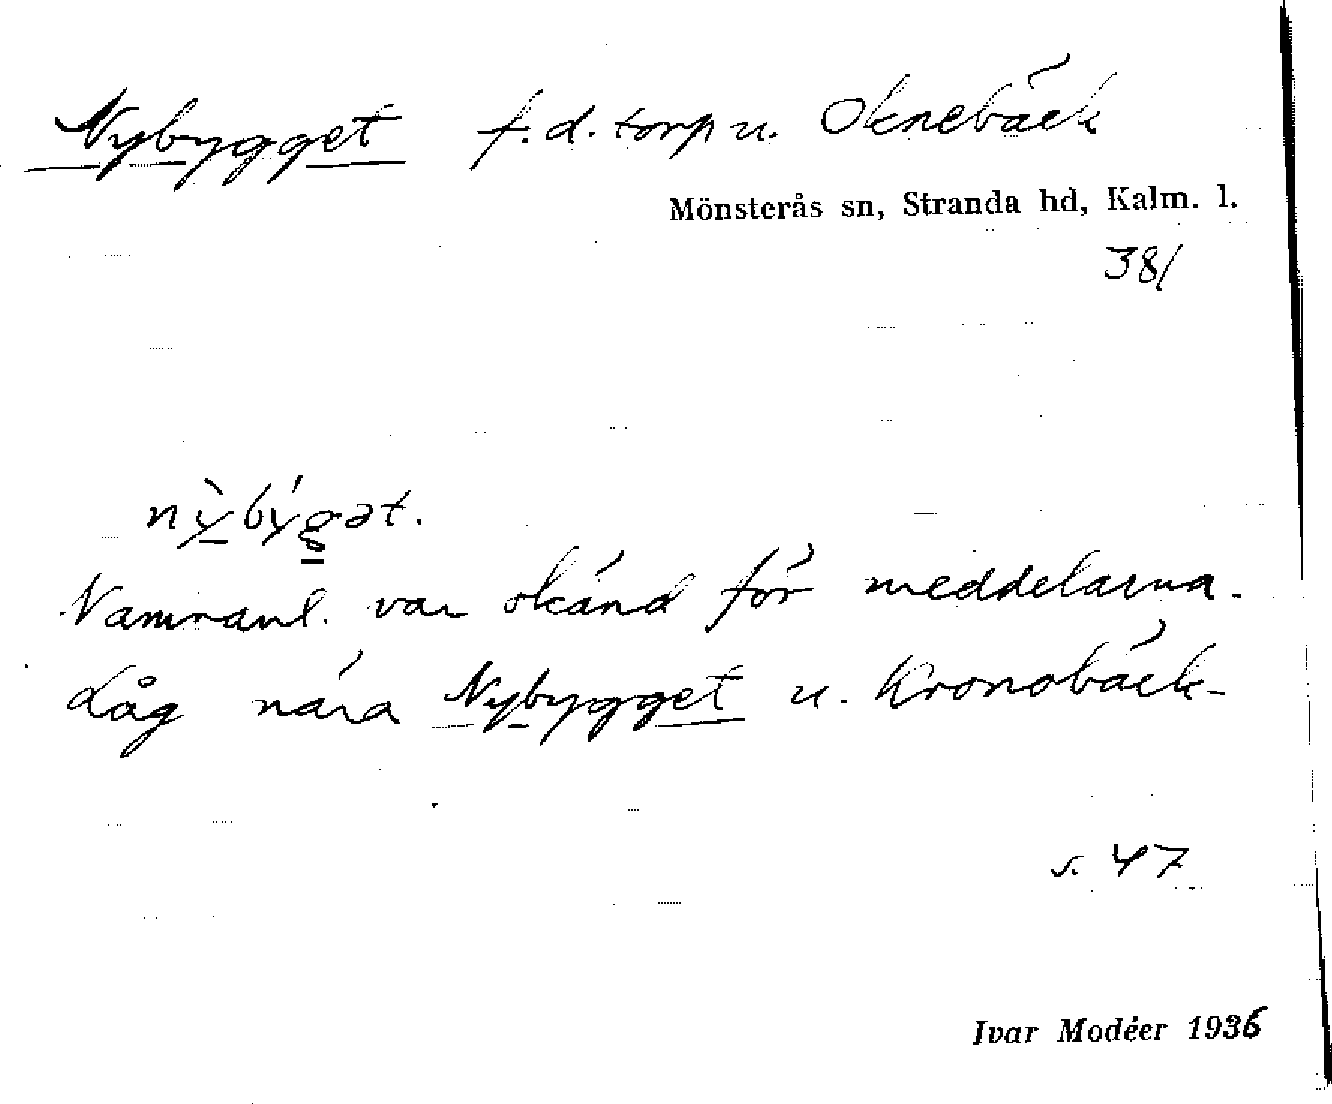 Nybygget f.d. torp u. Oknebäck
Mönsterås sn, Stranda hd, Kalm. l.
381
nỳbýgət.
Namnanl. var okänd för meddelarna.
Låg nära Nybygget u. Kronobäck-
s. 47
Ivar Modéer 1936